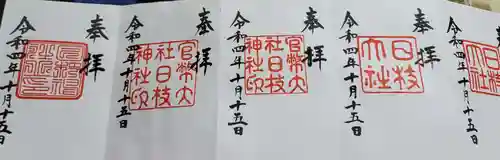 奉拝
令和四年十月十五日
奉拝
官幣大
社日枝
神社印
令和四年十月十五日
奉拝
官幣大
社日枝
神社印
令和四年十月十五日
奉拝
日枝
大社
令和四年十月十五日
奉拝
日枝
大社
令和四年十月十五日